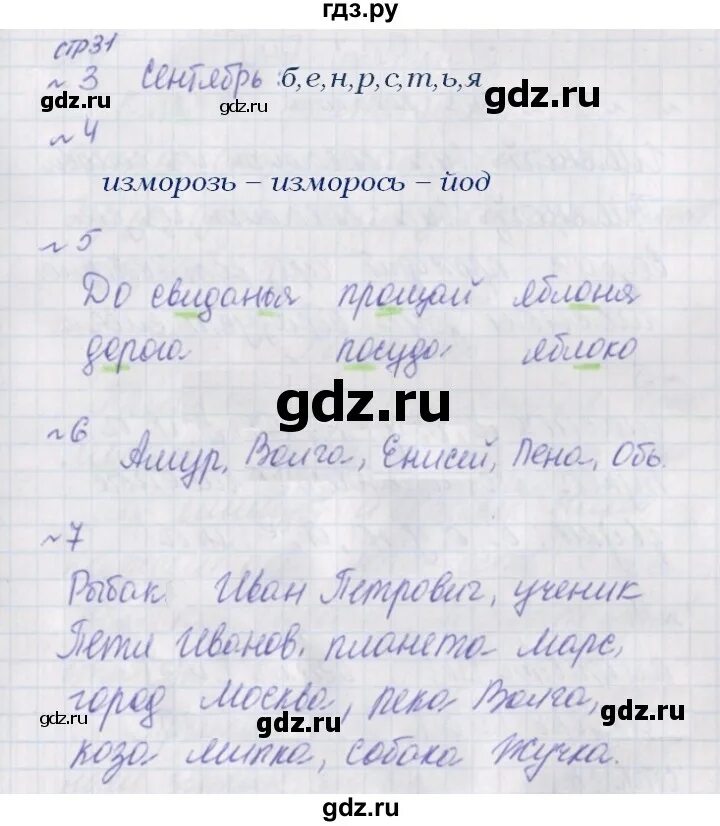 гдз.ру
стр 31
№ 3 Сентябрь :б,е,н,р,с,т,ь,я
gdz.ru gdz.ru gdz.ru
№ 4
изморозь – изморось – йод
№ 5
До свиданья прощай яблоня
дорога посуда яблоко
gdz.ru
№ 6
Амур, Волга, Енисей, Лена, Обь.
№ 7
Рыбак Иван Петрович, ученик
Петя Иванов, планета Марс,
город Москва, река Волга,
gdz.ru gdz.ru gdz.ru
коза Милка, собака Жучка.
gdz.ru